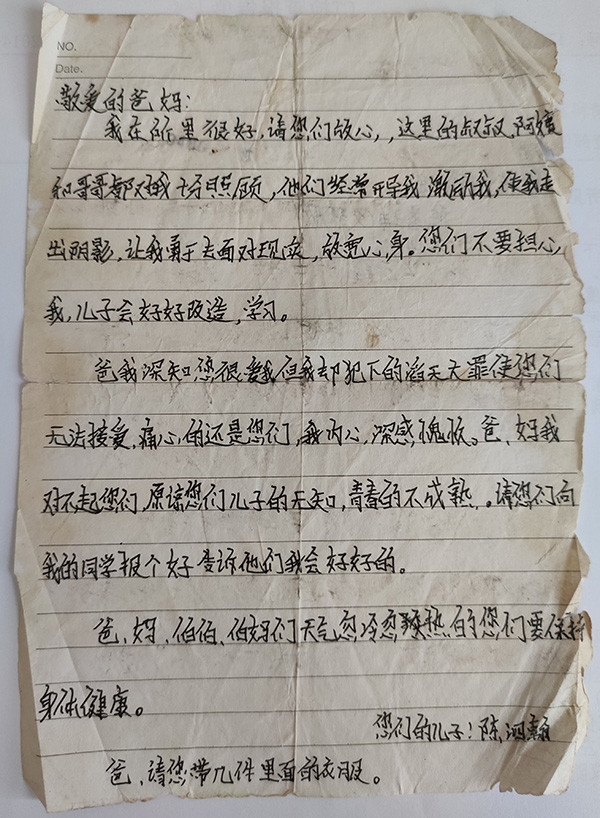 NO.
Date.
敬爱的爸妈:
我在所里很好,请您们放心,,这里的叔叔,阿姨
和哥哥都对我十分照顾,他们经常开导我激励我,使我走
出阴影,让我勇于去面对现实,放宽心身。您们不要担心
我,儿子会好好改造,学习。
爸我深知您很爱我但我却犯下的滔天大罪使您们
无法接受,痛心的还是您们,我内心,深感愧疚。爸、妈我
对不起您们,原谅您们儿子的无知,青春的不成熟,。请您们向
我的同学报个好告诉他们我会好好的。
爸、妈、伯伯、伯妈们天气忽冷忽热的您们要保持
身体健康。
您们的儿子:陈泗翰
爸、请您带几件里面的衣服。